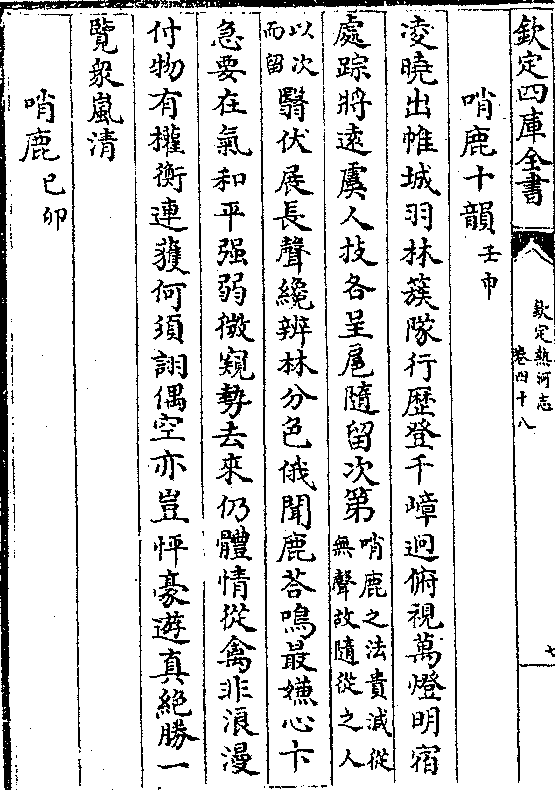 欽定四庫全書
欽定熱河志
卷四十八
七
哨鹿十韻壬申
凌曉出帷城羽林簇隊行歴登千嶂迥俯視萬燈明宿
處踪將遠虞人技各呈尾隨留次第哨鹿之法貴減從無聲故隨從之人
以次而留翳伏展長聲纔辨林分色俄聞鹿荅鳴最嫌心卞
急要在氣和平强弱微窺勢去來仍體情從禽非浪漫
付物有權衡連獲何須詡偶空亦豈怦豪遊真絶勝一
覽衆嵐清
哨鹿己卯